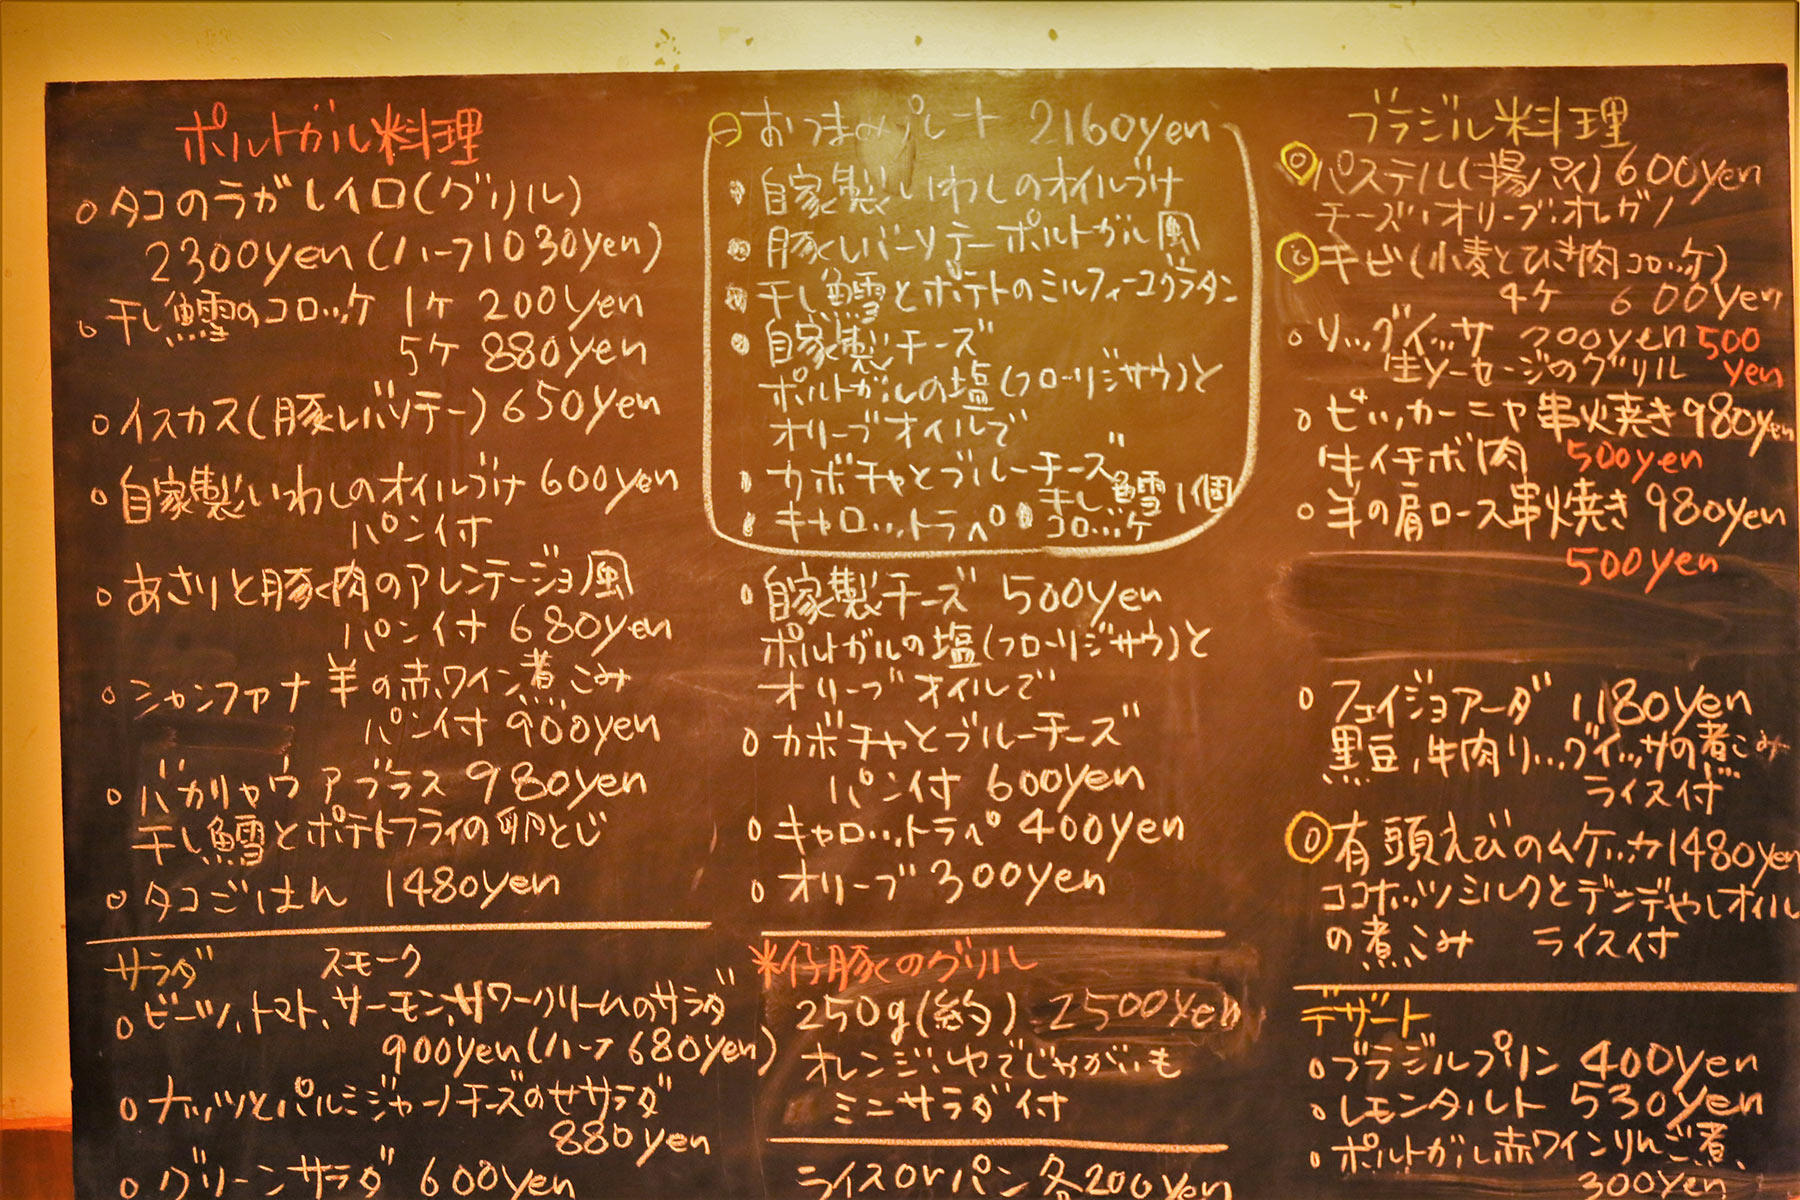 ポルトガル料理
タコのラガレイロ(グリル)
2300yen(ハーフ1030yen)
干し鱈のコロッケ 1ケ 200yen
5ケ 880yen
イスカス(豚レバソテー)650yen
自家製いわしのオイルづけ 600yen
パン付
あさりと豚肉のアレンテージョ風
パン付 680yen
シャンファナ 羊の赤ワイン煮こみ
パン付 900yen
バカリャウ ア ブラス 980yen
干し鱈とポテトフライの卵とじ
タコごはん 1480yen
サラダ スモーク
ビーツ、トマト、サーモン、サワークリームのサラダ
900yen(ハーフ 680yen)
ナッツとパルミジャーノチーズのサラダ
880yen
グリーンサラダ 600yen
おつまみプレート 2160yen
自家製いわしのオイルづけ
豚レバーソテーポルトガル風
干し鱈とポテトのミルフィーユグラタン
自家製チーズ
ポルトガルの塩(フローリジサウ)と
オリーブオイルで
カボチャとブルーチーズ
キャロットラペ 干し鱈コロッケ 1個
自家製チーズ 500yen
ポルトガルの塩(フローリジサウ)と
オリーブオイルで
カボチャとブルーチーズ
パン付 600yen
キャロットラペ 400yen
オリーブ 300yen
米仔豚のグリル
250g(約) 2500yen
オレンジいやでじゃがいも
ミニサラダ付
ライスorパン 各200yen
ブラジル料理
パステル(揚パイ)600yen
チーズ・オリーブ・オレガノ
キビ(小麦とひき肉コロッケ)
4ケ 600yen
リングイッサ 700yen 500
生ソーセージのグリル yen
ピッカーニャ串焼き 980yen
牛イチボ肉 500yen
羊の肩ロース串焼き 980yen
500yen
フェイジョアーダ 1180yen
黒豆、牛肉リングイッサの煮こみ
ライス付
有頭えびのムケッカ1480yen
ココナッツミルクとデンデやしオイル
の煮こみ ライス付
デザート
ブラジルプリン 400yen
レモンタルト 530yen
ポルトガル赤ワインりんご煮
300yen